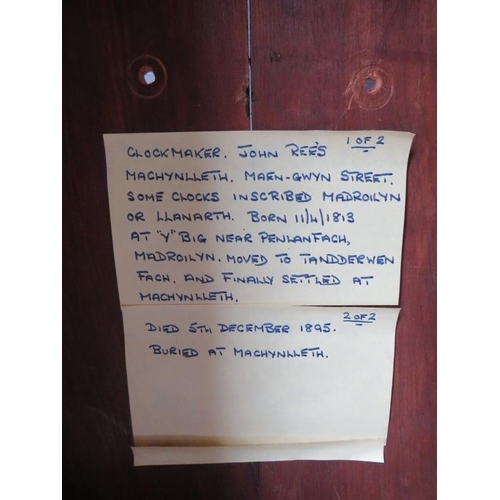 1 OF 2
CLOCKMAKER. JOHN REE'S
MACHYNLLETH. MAEN-GWYN STREET.
SOME CLOCKS INSCRIBED MADROILYN
OR LLANARTH. BORN 11/4/1813
AT "Y" BIG NEAR PENLANFACH,
MADROILYN. MOVED TO TANDDERWEN
FACH. AND FINALLY SETTLED AT
MACHYNLLETH.
2 OF 2
DIED 5TH DECEMBER 1895.
BURIED AT MACHYNLLETH.